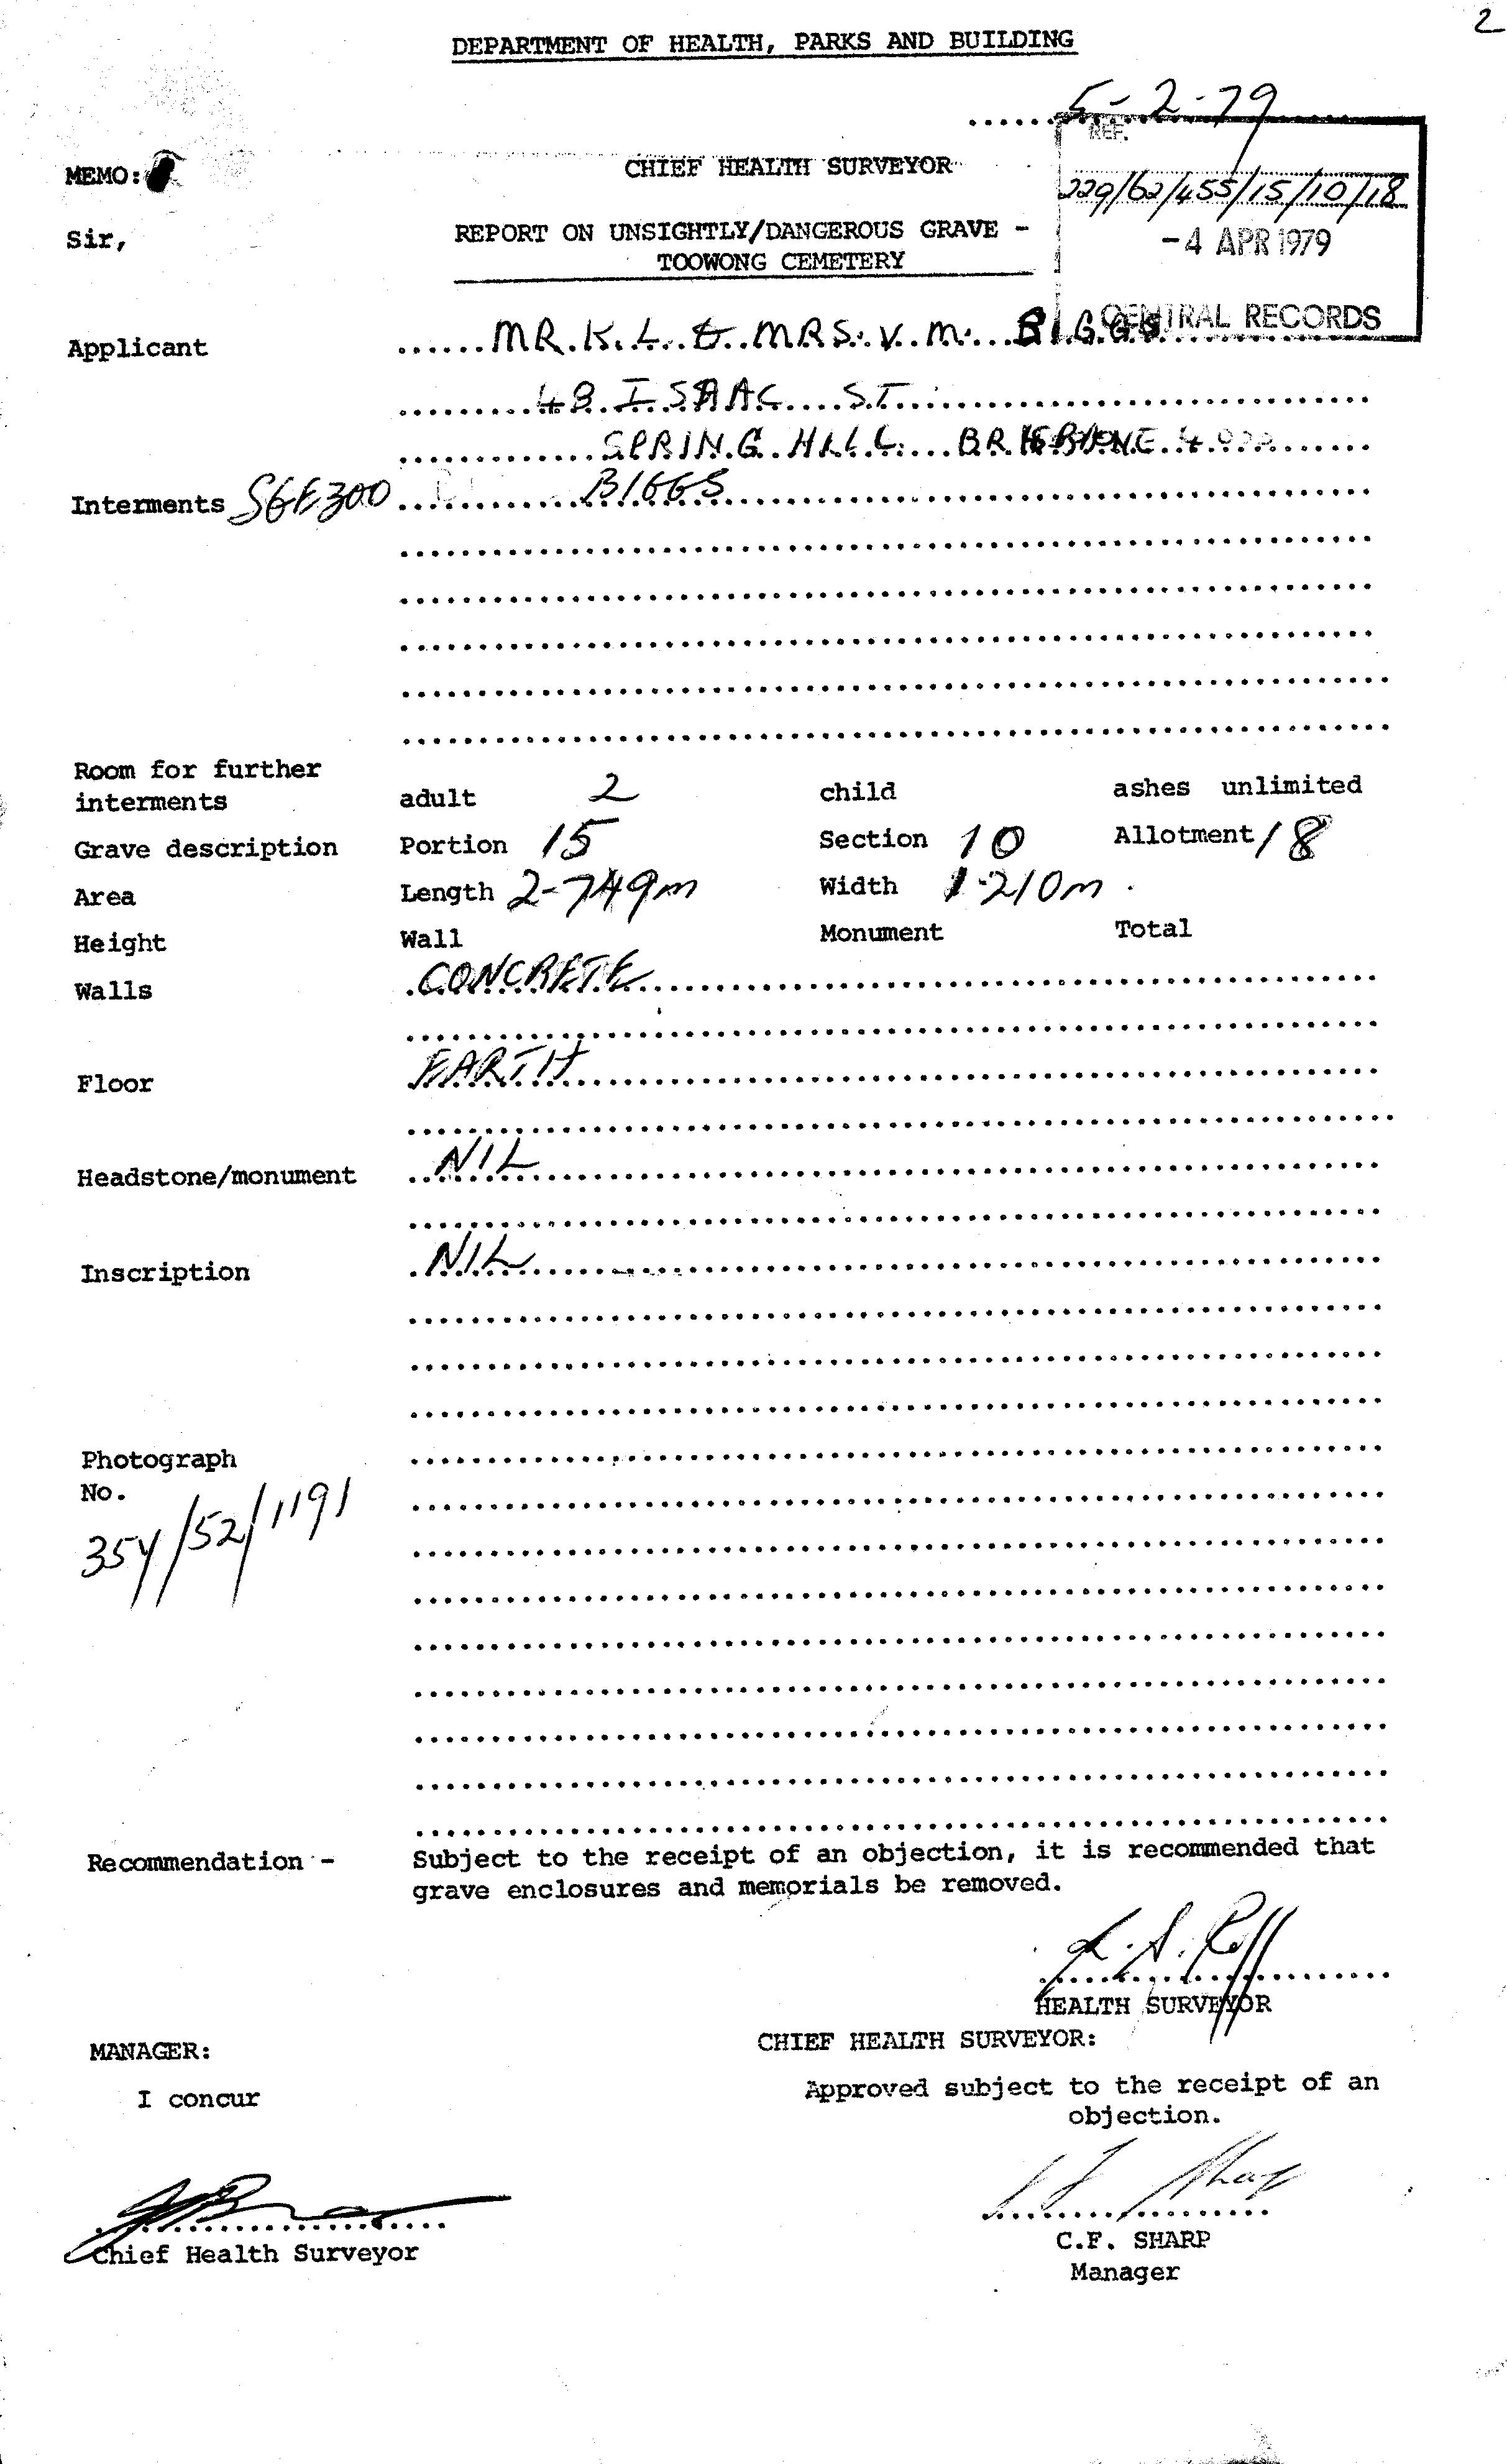 2
DEPARTMENT OF HEALTH, PARKS AND BUILDING
5-2-79
REF.
MEMO:
CHIEF HEALTH SURVEYOR
229/62/455/15/10/18
Sir,
REPORT ON UNSIGHTLY/DANGEROUS GRAVE -
TOOWONG CEMETERY
-4 APR 1979
CENTRAL RECORDS
Applicant MR. K. L. & MRS. V. M. BIGGS
48 ISAAC ST.
SPRING HILL BRISBANE
Interments BIGGS
Room for further
interments adult 2 child ashes unlimited
Grave description Portion 15 Section 10 Allotment 18
Area Length 2-749m Width 1-210m.
Height Wall Monument Total
Walls CONCRETE
Floor EARTH
Headstone/monument NIL
Inscription NIL
Photograph
No.
354/52/1191
Recommendation - Subject to the receipt of an objection, it is recommended that
grave enclosures and memorials be removed.
HEALTH SURVEYOR
MANAGER: CHIEF HEALTH SURVEYOR:
I concur Approved subject to the receipt of an
objection.
Chief Health Surveyor
C.F. SHARP
Manager